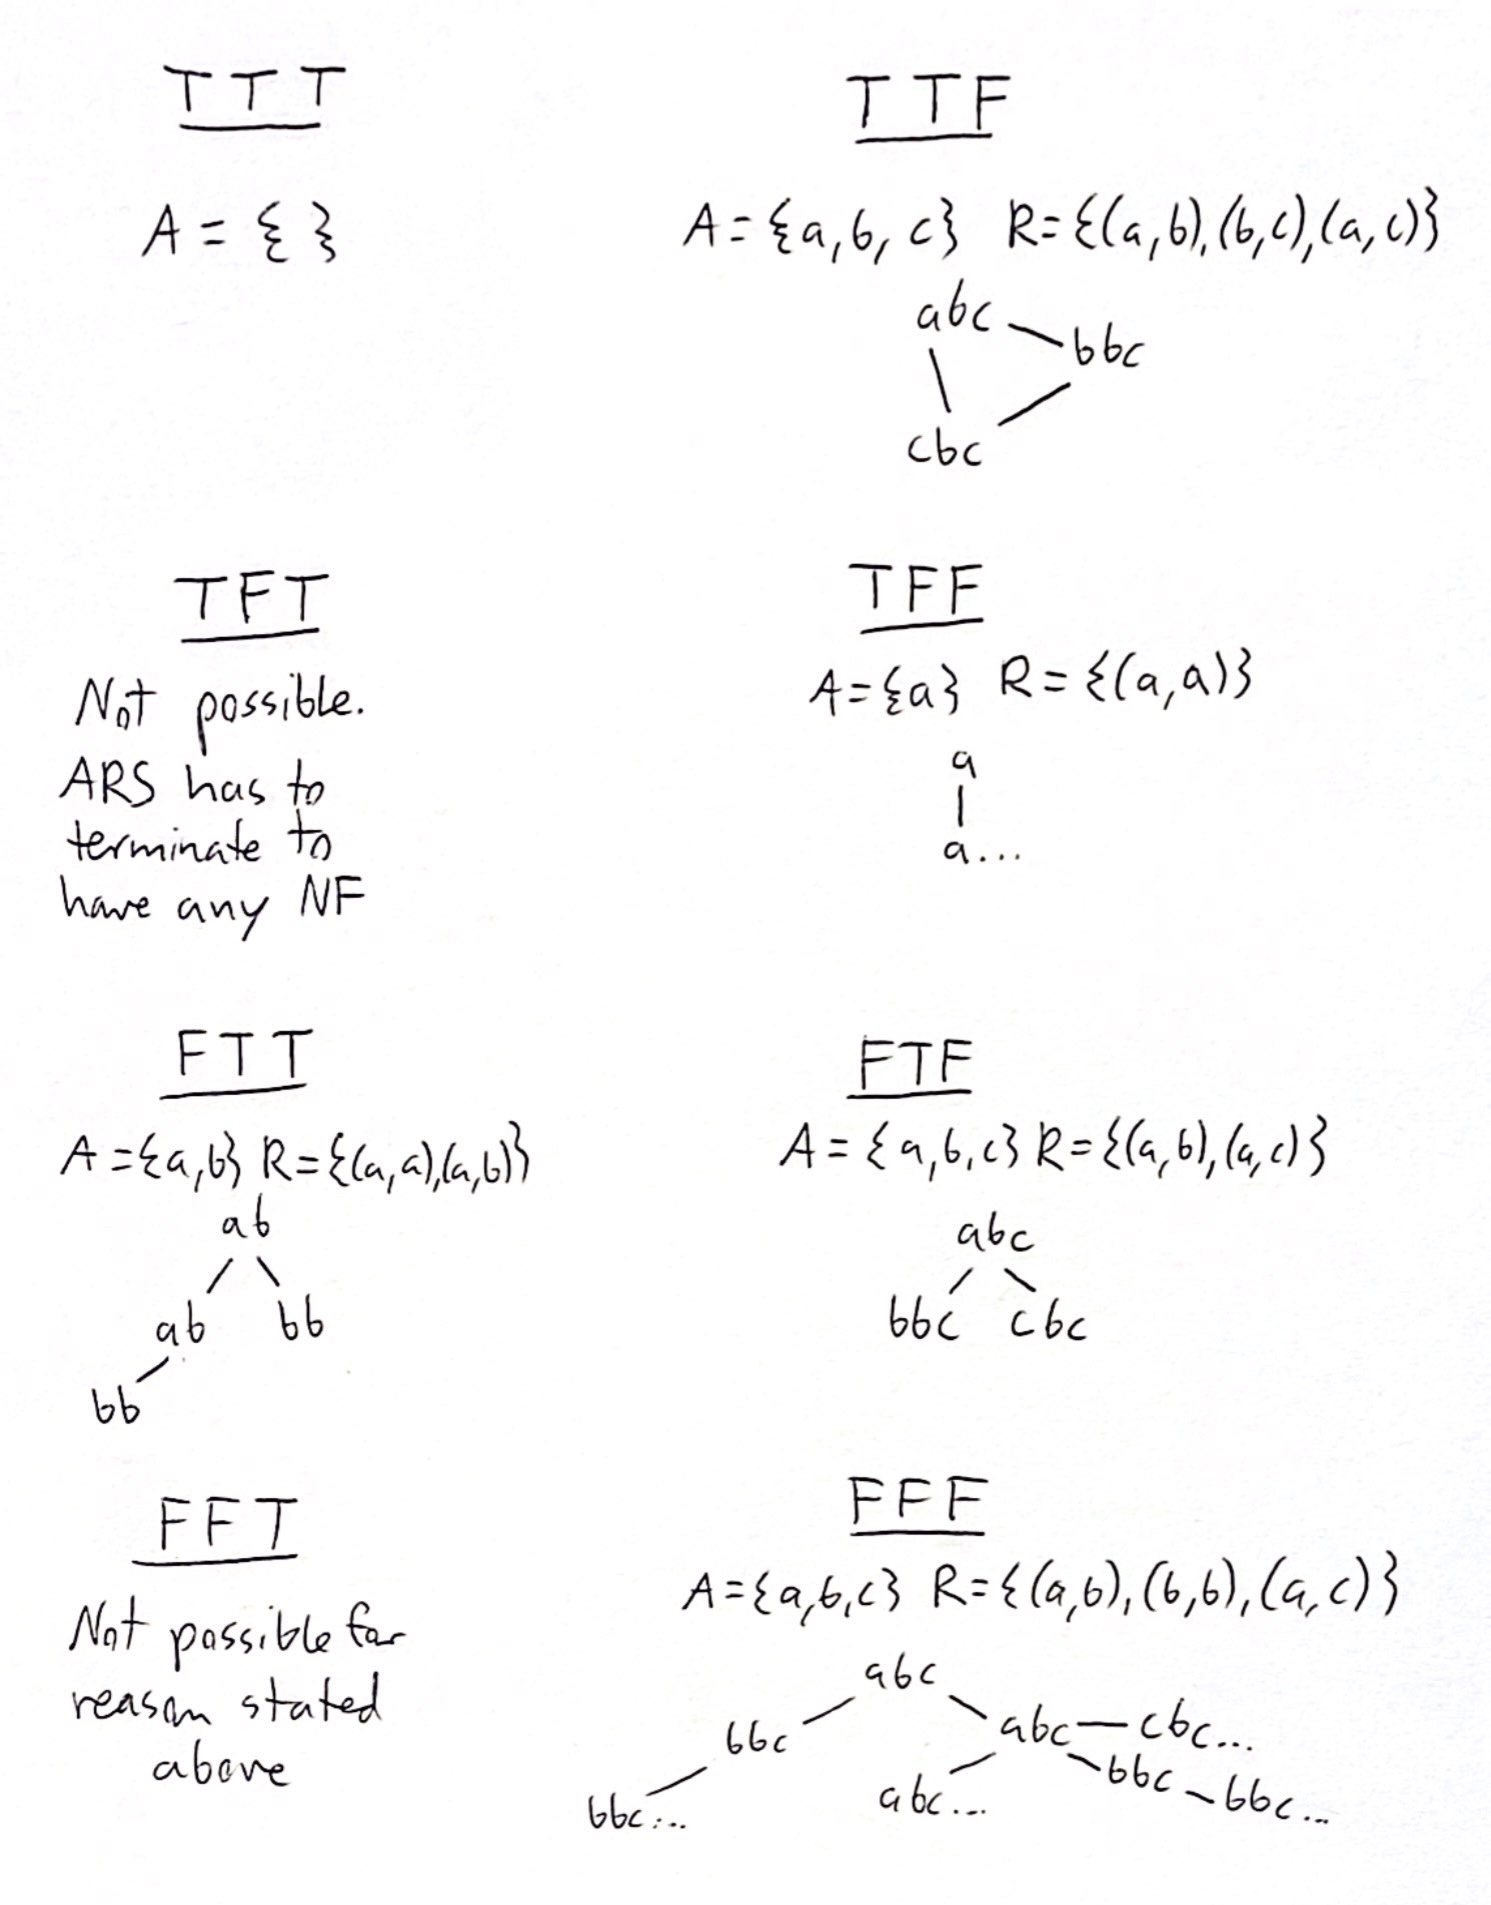 TTT
A = { }
TTF
A = {a, b, c} R = {(a, b), (b, c), (a, c)}
abc
bbc
cbc
TFT
Not possible.
ARS has to
terminate to
have any NF
TFF
A = {a} R = {(a, a)}
a
a...
FTT
A = {a, b} R = {(a, a), (a, b)}
ab
ab bb
bb
FTF
A = {a, b, c} R = {(a, b), (a, c)}
abc
bbc cbc
FFT
Not possible for
reason stated
above
FFF
A = {a, b, c} R = {(a, b), (b, b), (a, c)}
abc
bbc abc cbc...
bbc... abc... bbc bbc...